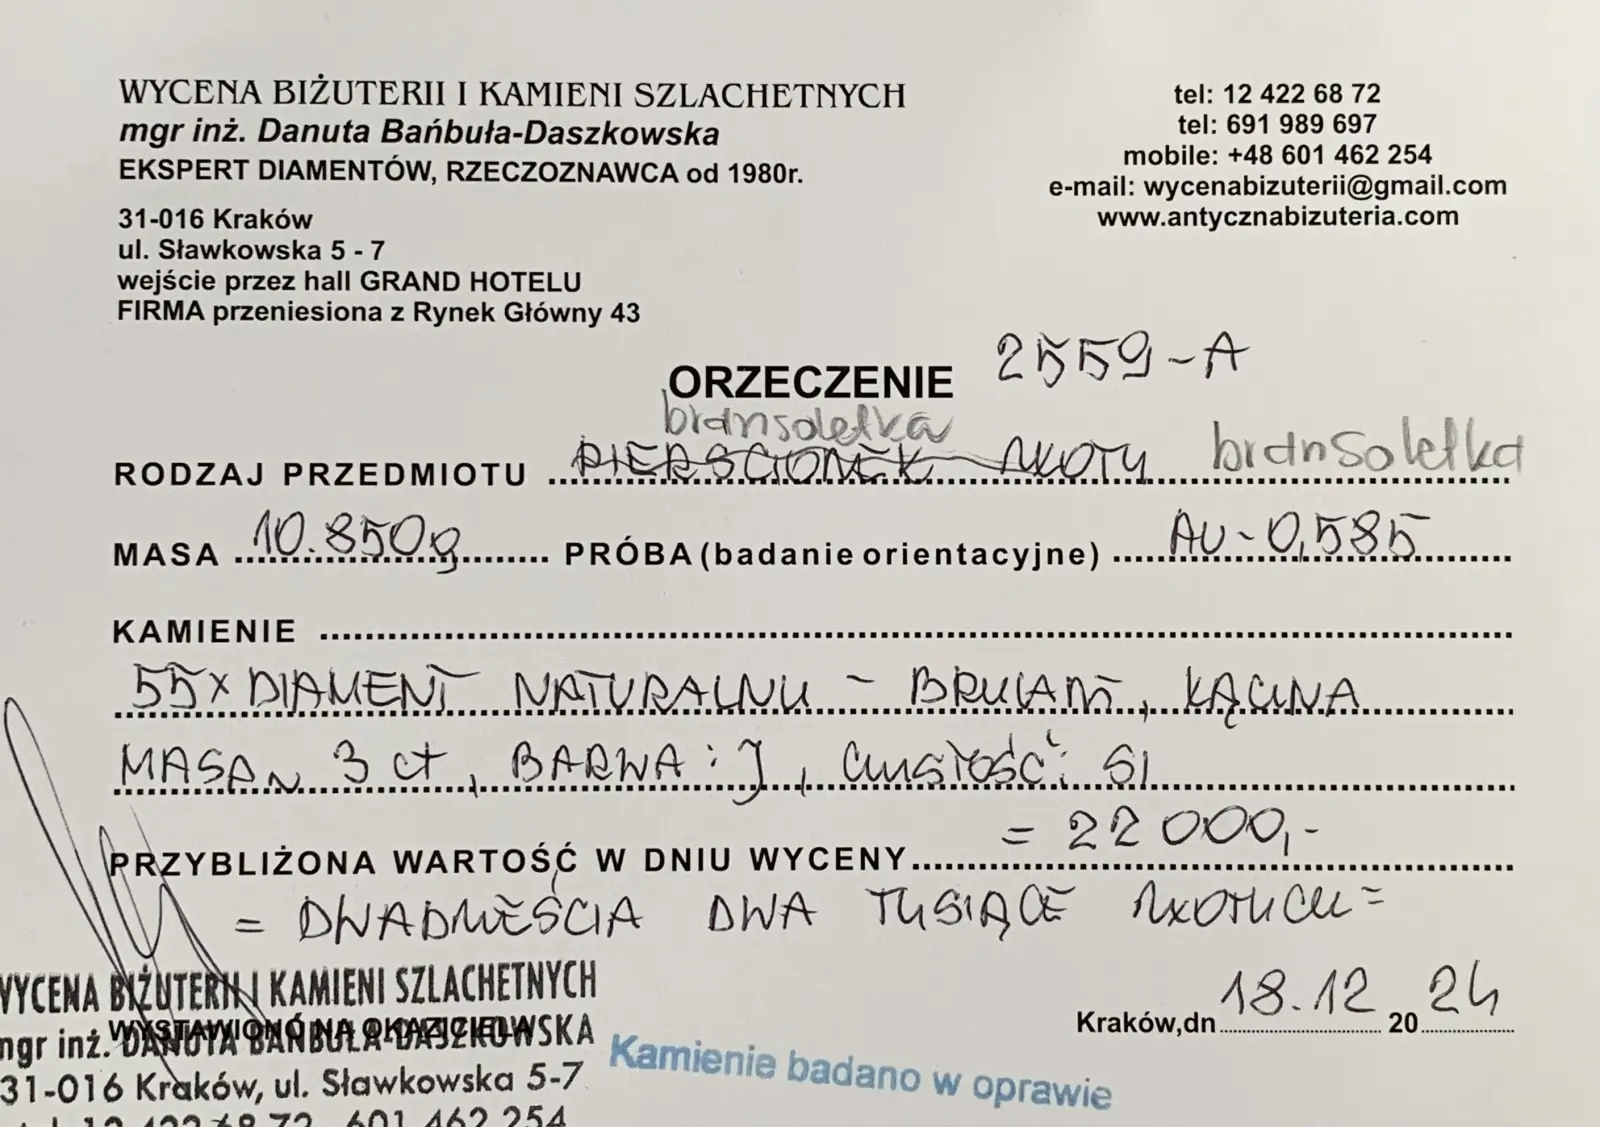 WYCENA BIŻUTERII I KAMIENI SZLACHETNYCH
mgr inż. Danuta Bańbuła-Daszkowska
EKSPERT DIAMENTÓW, RZECZOZNAWCA od 1980r.
31-016 Kraków
ul. Sławkowska 5 - 7
wejście przez hall GRAND HOTELU
FIRMA przeniesiona z Rynek Główny 43
tel: 12 422 68 72
tel: 691 989 697
mobile: +48 601 462 254
e-mail: wycenabizuterii@gmail.com
www.antycznabizuteria.com
ORZECZENIE 2559-A
bransoletka
RODZAJ PRZEDMIOTU PIERŚCIONEK ZŁOTY bransoletka
MASA 10.850g PRÓBA (badanie orientacyjne) AU-0,585
KAMIENIE
55x DIAMENT NATURALNY - BRYLANT, ŁĄCZNA
MASA ~ 3 ct, BARWA: J, CZYSTOŚĆ: SI
PRZYBLIŻONA WARTOŚĆ W DNIU WYCENY = 22 000,-
= DWADZIEŚCIA DWA TYSIĄCE ZŁOTYCH =
Kraków, dn 18.12 2024
WYSTAWIONO NA OKAZICIELA
WYCENA BIŻUTERII I KAMIENI SZLACHETNYCH
mgr inż. DANUTA BAŃBUŁA-DASZKOWSKA
31-016 Kraków, ul. Sławkowska 5-7
tel. 12 422 68 72, 601 462 254
Kamienie badano w oprawie